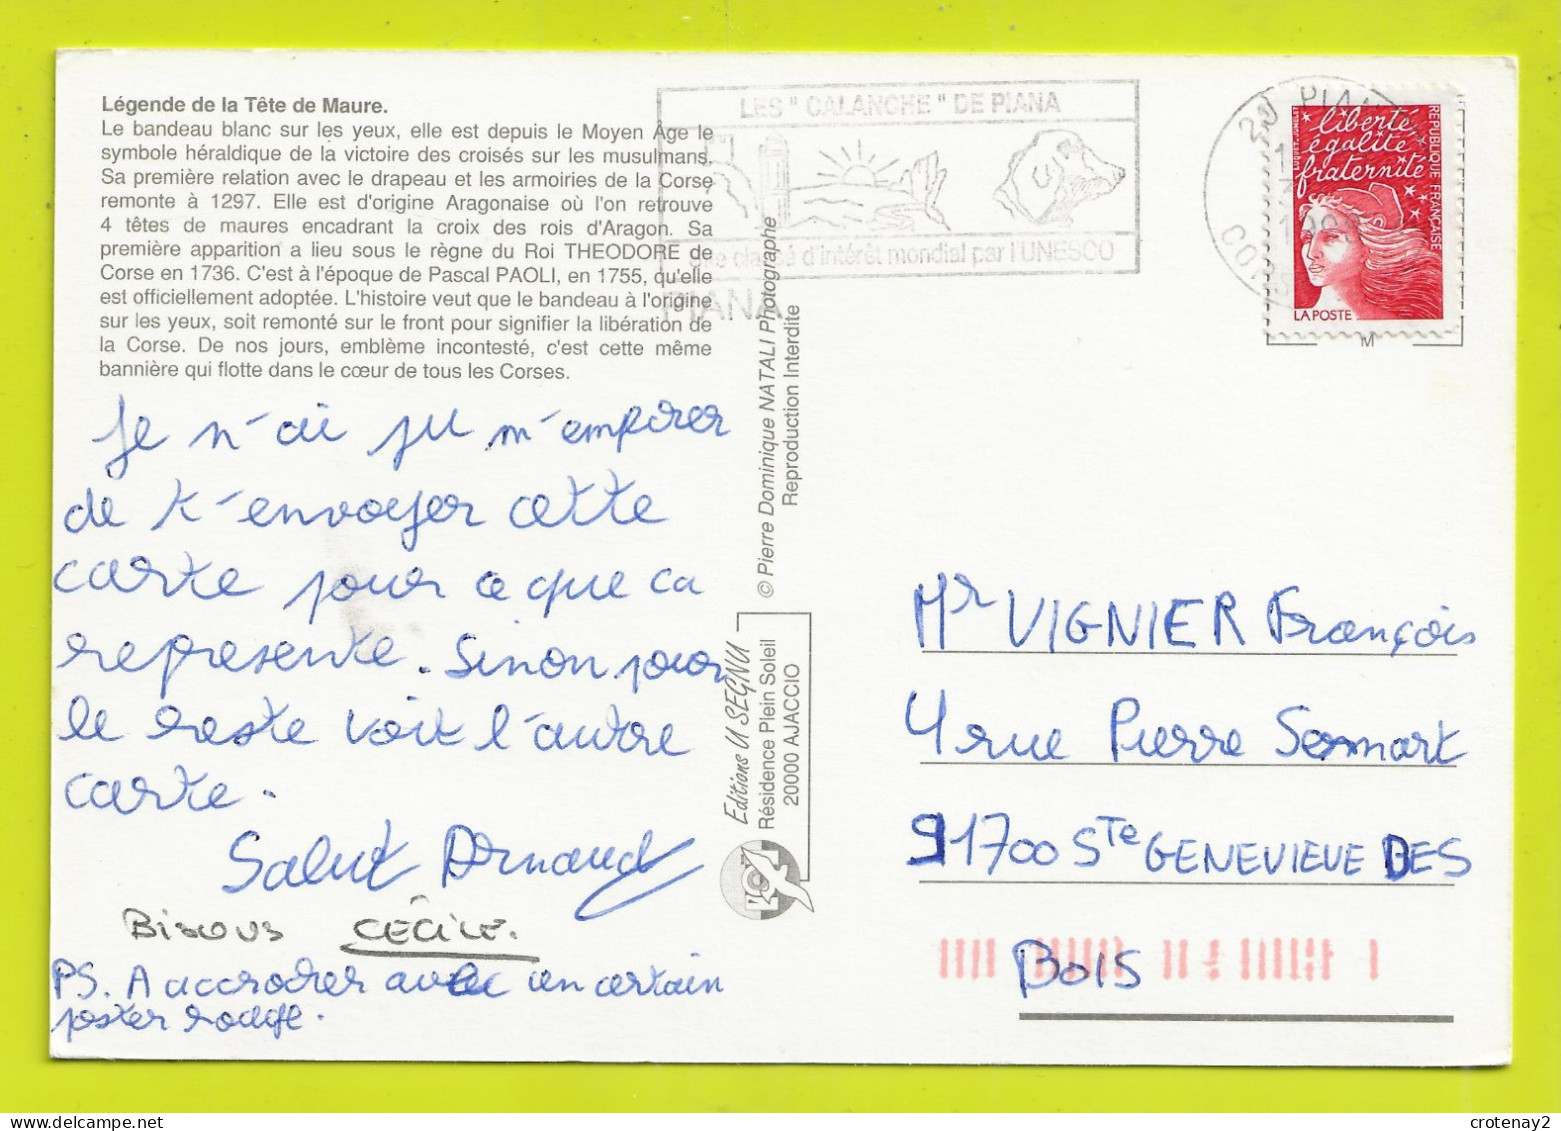 Légende de la Tête de Maure.
Le bandeau blanc sur les yeux, elle est depuis le Moyen Âge le
symbole héraldique de la victoire des croisés sur les musulmans.
Sa première relation avec le drapeau et les armoiries de la Corse
remonte à 1297. Elle est d'origine Aragonaise où l'on retrouve
4 têtes de maures encadrant la croix des rois d'Aragon. Sa
première apparition a lieu sous le règne du Roi THEODORE de
Corse en 1736. C'est à l'époque de Pascal PAOLI, en 1755, qu'elle
est officiellement adoptée. L'histoire veut que le bandeau à l'origine
sur les yeux, soit remonté sur le front pour signifier la libération de
la Corse. De nos jours, emblème incontesté, c'est cette même
bannière qui flotte dans le cœur de tous les Corses.
Je n'ai pu m'empirer
de t'envoyer cette
carte pour ce que ca
represente. Sinon pour
le reste voit l'autre
carte.
Salut Arnaud
BISOUS CÉCILE.
PS. A accrocher avec un certain
poster rouge.
LES "CALANCHE" DE PIANA
Site classé d'intérêt mondial par l'UNESCO
PIANA
© Pierre Dominique NATALI Photographe
Reproduction Interdite
Editions U SEGNU
Résidence Plein Soleil
20000 AJACCIO
20 PIANA
CORSE
liberté
égalité
fraternité
RÉPUBLIQUE FRANÇAISE
LA POSTE
M
Mr VIGNIER François
4 rue Pierre Semart
91700 Ste GENEVIEVE DES
BOIS
crotenay2